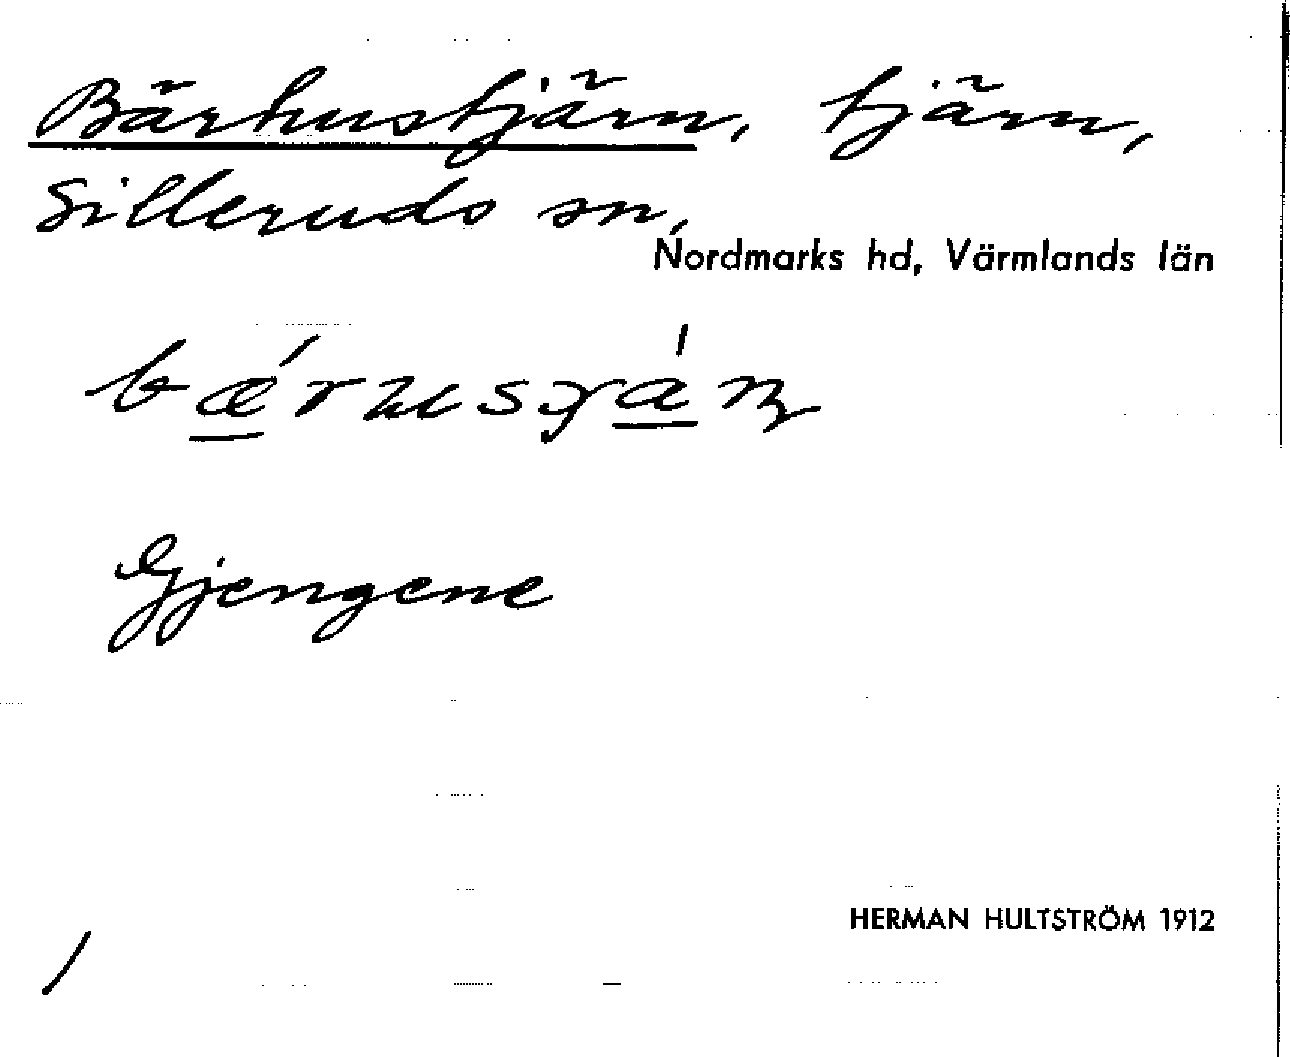 Bärhustjärn, tjärn,
Silleruds sn,
Nordmarks hd, Värmlands län
Gjengene
HERMAN HULTSTRÖM 1912
/